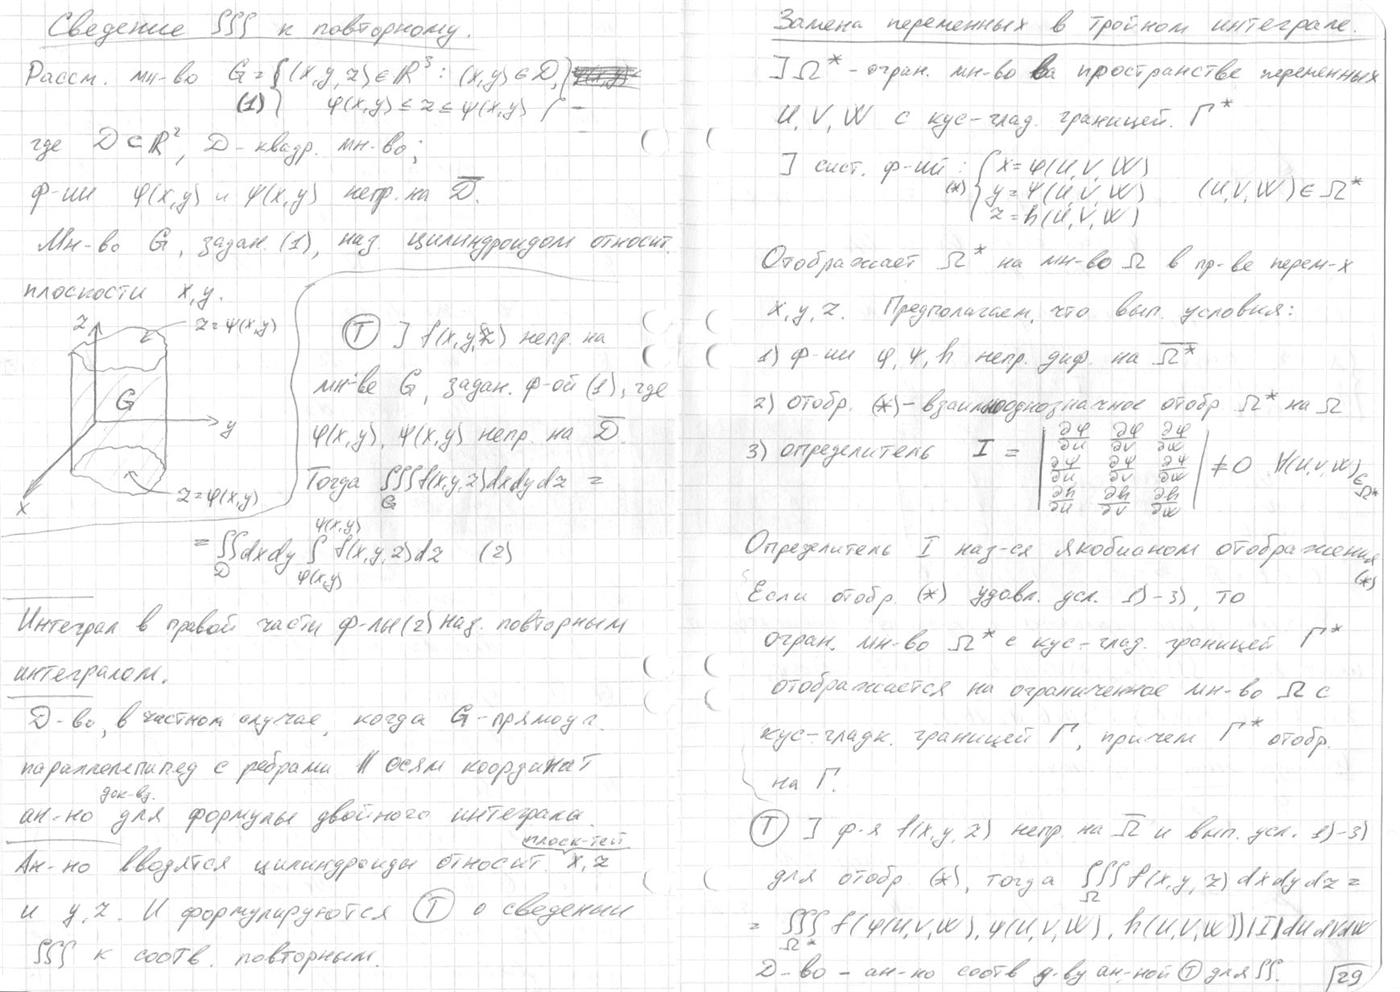 Сведение ∫∫∫ к повторному.
Рассм. мн-во G = {(x,y,z)∈ℝ³ : (x,y)∈D,
(1) φ(x,y) ≤ z ≤ ψ(x,y)} –
где D⊂ℝ², D – квадр. мн-во;
ф-ии φ(x,y) и ψ(x,y) непр. на D̅.
Мн-во G, задан. (1), наз. цилиндроидом относит.
плоскости x,y.
z
z=ψ(x,y)
G
y
z=φ(x,y)
x
Ⓣ ] f(x,y,z) непр. на
мн-ве G, задан. ф-ой (1), где
φ(x,y), ψ(x,y) непр. на D̅.
Тогда ∫∫∫_G f(x,y,z)dxdydz =
= ∫∫_D dxdy ∫_{φ(x,y)}^{ψ(x,y)} f(x,y,z)dz (2)
Интеграл в правой части ф-лы (2) наз. повторным
интегралом.
D-во, в частном случае, когда G – прямоуг.
параллелепипед с ребрами || осям координат
док-ву
ан-но для формулы двойного интеграла.
плоск-тей
Ан-но вводятся цилиндроиды относит. x,z
и y,z. И формулируются Ⓣ о сведении
∫∫∫ к соотв. повторным.
Замена переменных в тройном интеграле.
] Ω* – огран. мн-во в пространстве переменных
U, V, W с кус-глад. границей Γ*
] сист. ф-ий : (*) { x=φ(U,V,W)
y=ψ(U,V,W) (U,V,W)∈Ω*
z=h(U,V,W)
Отображает Ω* на мн-во Ω в пр-ве перем-х
x,y,z. Предполагаем, что вып. условия:
1) ф-ии φ,ψ,h непр. диф. на Ω̅*
2) отобр. (*) – взаимнооднозначное отобр. Ω* на Ω
3) определитель I = | ∂φ/∂u ∂φ/∂v ∂φ/∂w
∂ψ/∂u ∂ψ/∂v ∂ψ/∂w
∂h/∂u ∂h/∂v ∂h/∂w | ≠0 ∀(U,V,W)∈Ω*
Определитель I наз-ся якобианом отображения
(*)
Если отобр. (*) удовл. усл. 1)-3), то
огран. мн-во Ω* с кус-глад. границей Γ*
отображается на ограниченное мн-во Ω с
кус-гладк. границей Γ, причем Γ* отобр.
на Γ.
Ⓣ ] ф-я f(x,y,z) непр. на Ω̅ и вып. усл. 1)-3)
для отобр (*), тогда ∫∫∫_Ω f(x,y,z)dxdydz =
= ∫∫∫_{Ω*} f(φ(U,V,W), ψ(U,V,W), h(U,V,W))|I|dUdVdW
D-во – ан-но соотв д-ву ан-ной Ⓣ для ∫∫.
29